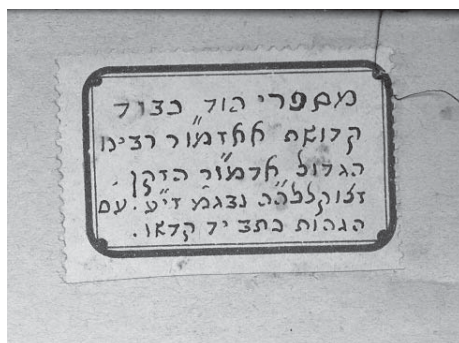 מספרי הוד כבוד
קדושת אאזמו"ר רבינו
הגדול אדמו"ר הזקן.
זצוקללה"ה נבגמ זי"ע. עם
הגהות כתב יד קדשו.